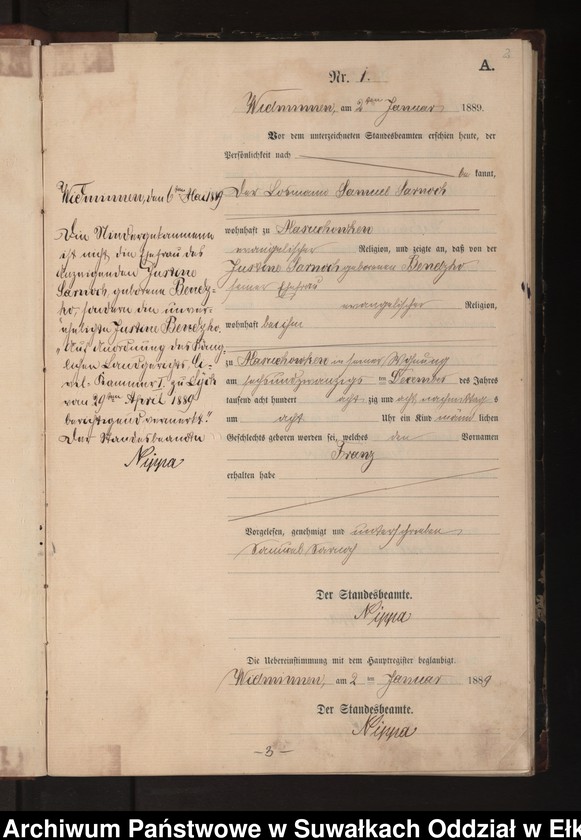 2
A.
Nr. 1.
Widminnen, am 2ten Januar 1889.
Vor dem unterzeichneten Standesbeamten erschien heute, der
Persönlichkeit nach
be kannt,
Der Losmann Samuel Sarnoch
wohnhaft zu Masuchowken
evangelischer Religion, und zeigte an, daß von der
Justine Sarnoch geborenen Bendzko
seiner Ehefrau
evangelischer Religion,
wohnhaft bei ihm
zu Masuchowken in seiner Wohnung
am sechsundzwanzigs ten Dezember des Jahres
tausend acht hundert acht zig und acht nachmittag s
um acht Uhr ein Kind männ lichen
Geschlechts geboren worden sei, welches den Vornamen
Franz
erhalten habe
Vorgelesen, genehmigt und unterschrieben
Samuel Sarnoch
Der Standesbeamte.
Nippa
Die Uebereinstimmung mit dem Hauptregister beglaubigt.
Widminnen, am 2 ten Januar 1889
Der Standesbeamte.
Nippa
- 3 -
Widminnen, den 6ten Mai 1889
Die Niedergekommene
ist nicht die Ehefrau des
Anzeigenden Justine
Sarnoch, geborene Bendz-
ko, sondern die unver-
ehelichte Justine Bendzko.
"Auf Anordnung des König-
lichen Landgerichts, Ci-
vil-Kammer I. zu Lyck
vom 29ten April 1889
berichtigend vermerkt."
Der Standesbeamte
Nippa
Archiwum Państwowe w Suwałkach Oddział w Ełk